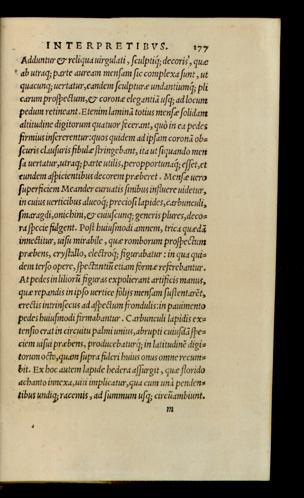 INTERPRETIBVS. 177
Adduntur & reliqua uirgulati, sculptiq; decoris, quæ
ab utraq; parte auream mensam sic complexa sunt, ut
quacunq; uertatur, eandem sculpturæ undantiumq; pli
carum prospectum, & coronæ elegantiã usq; ad locum
pedum retineant. Etenim laminã totius mensæ solidam
altitudine digitorum quatuor fecerant, quò in ea pedes
firmius insererentur: quos quidem ad ipsam coronã ob=
scuris clausuris fibulæ stringebant, ita ut siquando men
sa uertatur, utraq; parte utilis, peropportunaq; esset, et
eundem aspicientibus decorem præberet. Mensæ uero
superficiem Meander curuatis sinibus influere uidetur,
in cuius uerticibus alueoq; preciosi lapides, carbunculi,
smaragdi, onichini, & cuiuscunq; generis plures, deco=
ra specie fulgent. Post huiusmodi amnem, trica quædã
innectitur, uisu mirabile, quæ romborum prospectum
præbens, crystallo, electroq; figurabatur: in qua qui=
dem terso opere, spectantiũ etiam formæ referebantur.
At pedes in liliorũ figuras expolierant artificis manus,
quæ repandis in ipso uertice folijs mensam sustentarẽt,
erectis intrinsecus ad aspectum frondulis: in pauimento
pedes huiusmodi firmabantur. Carbunculi lapidis ex=
tensio erat in circuitu palmi unius, abrupti cuiusdã spe=
ciem uisui præbens, producebaturq; in latitudinẽ digi=
torum octo, quam supra fulcri huius onus omne recum=
bit. Ex hoc autem lapide hedera assurgit, quæ florido
achanto innexa, uiti implicatur, qua cum unà penden=
tibus undiq; racemis, ad summum usq; circũambiunt.
m